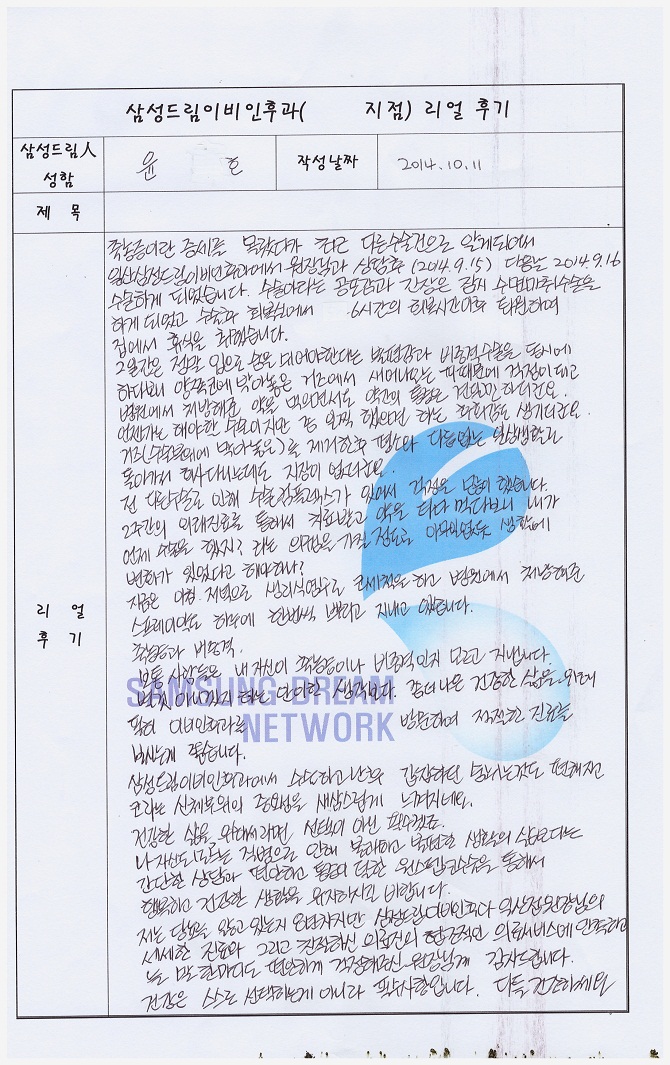 삼성드림이비인후과( 지점) 리얼 후기
삼성드림人 성함
윤 호
작성날짜
2014.10.11
제 목
리 얼 후 기
축농증이란 증세를 몰랐다가 최근 다른수술건으로 알게되어서
일산삼성드림이비인후과에서 원장님과 상담후 (2014.9.15) 다음날 2014.9.16
수술하게 되었습니다. 수술이라는 공포감과 긴장은 잠시 수면마취수술을
하게 되었고 수술후 회복실에서 6시간의 회복시간이후 퇴원하여
집에서 휴식을 취했습니다.
2일간은 정말 입으로 숨을 대어야한다는 불편감과 비중격수술을 동시에
하다보니 양쪽코에 막아놓은 거즈에서 새어나오는 피때문에 걱정이되고
병원에서 처방해준 약을 먹으면서도 약간의 통증은 견딜만 하더군요.
언젠가는 해야할 수술이지만 좀 일찍 했었으면 하는 후회감도 생기더군요.
거즈(수술부위에 막아놓음)를 제거한후 평소와 다름없는 일상생활로
돌아가서 회사다니는데도 지장이 없더군요.
전 다른수술로 인해 수술컴플렉스가 있어서 걱정을 많이 했습니다.
2주간의 외래진료를 통해서 치료받고 약을 타다 먹다보니 내가
언제 수술을 했지? 라는 의구심을 가질 정도로 아무일없듯 생활에
변화가 있었다고 해야하나?
지금은 아침.저녁으로 생리식염수로 코세척을 하고 병원에서 처방해준
스프레이약도 하루에 한번씩 뿌리고 지내고 있습니다.
축농증과 비중격.
보통 사람들은 내 자신이 축농증이나 비중격인지 모르고 지냅니다.
아니겠지 하는 안이한 생각보다. 좀더 나은 건강한 삶을 위하여
필히 이비인후과를 방문하여 적절한 진료를
받시는게 좋습니다.
삼성드림이비인후과에서 수술하고 난후 갑갑하던 숨쉬는것도 편해지고
코라는 신체부위의 중요성을 새삼스럽게 느껴지네요.
건강한 삶을 위해서라면 선택이 아닌 필수겠죠.
나 자신도 모르는 질병으로 인해 불쾌하고 불편한 생활의 삶보다는
간단한 상담과 편안하고 통증이 덜한 원스텝코수술을 통해서
행복하고 건강한 생활을 유지하시길 바랍니다.
저는 당뇨를 앓고 있는 환자지만 삼성드림이비인후과 일산점원장님의
세세한 진료와 그리고 친절하신 의료진의 헌신적인 의료서비스에 만족하고
늘 말 한마디도 편안하게 걱정해주신 원장님께 감사드립니다.
건강은 스스로 선택하는게 아니라 필수사항입니다. 다들 건강하세요
SAMSUNG DREAM
NETWORK